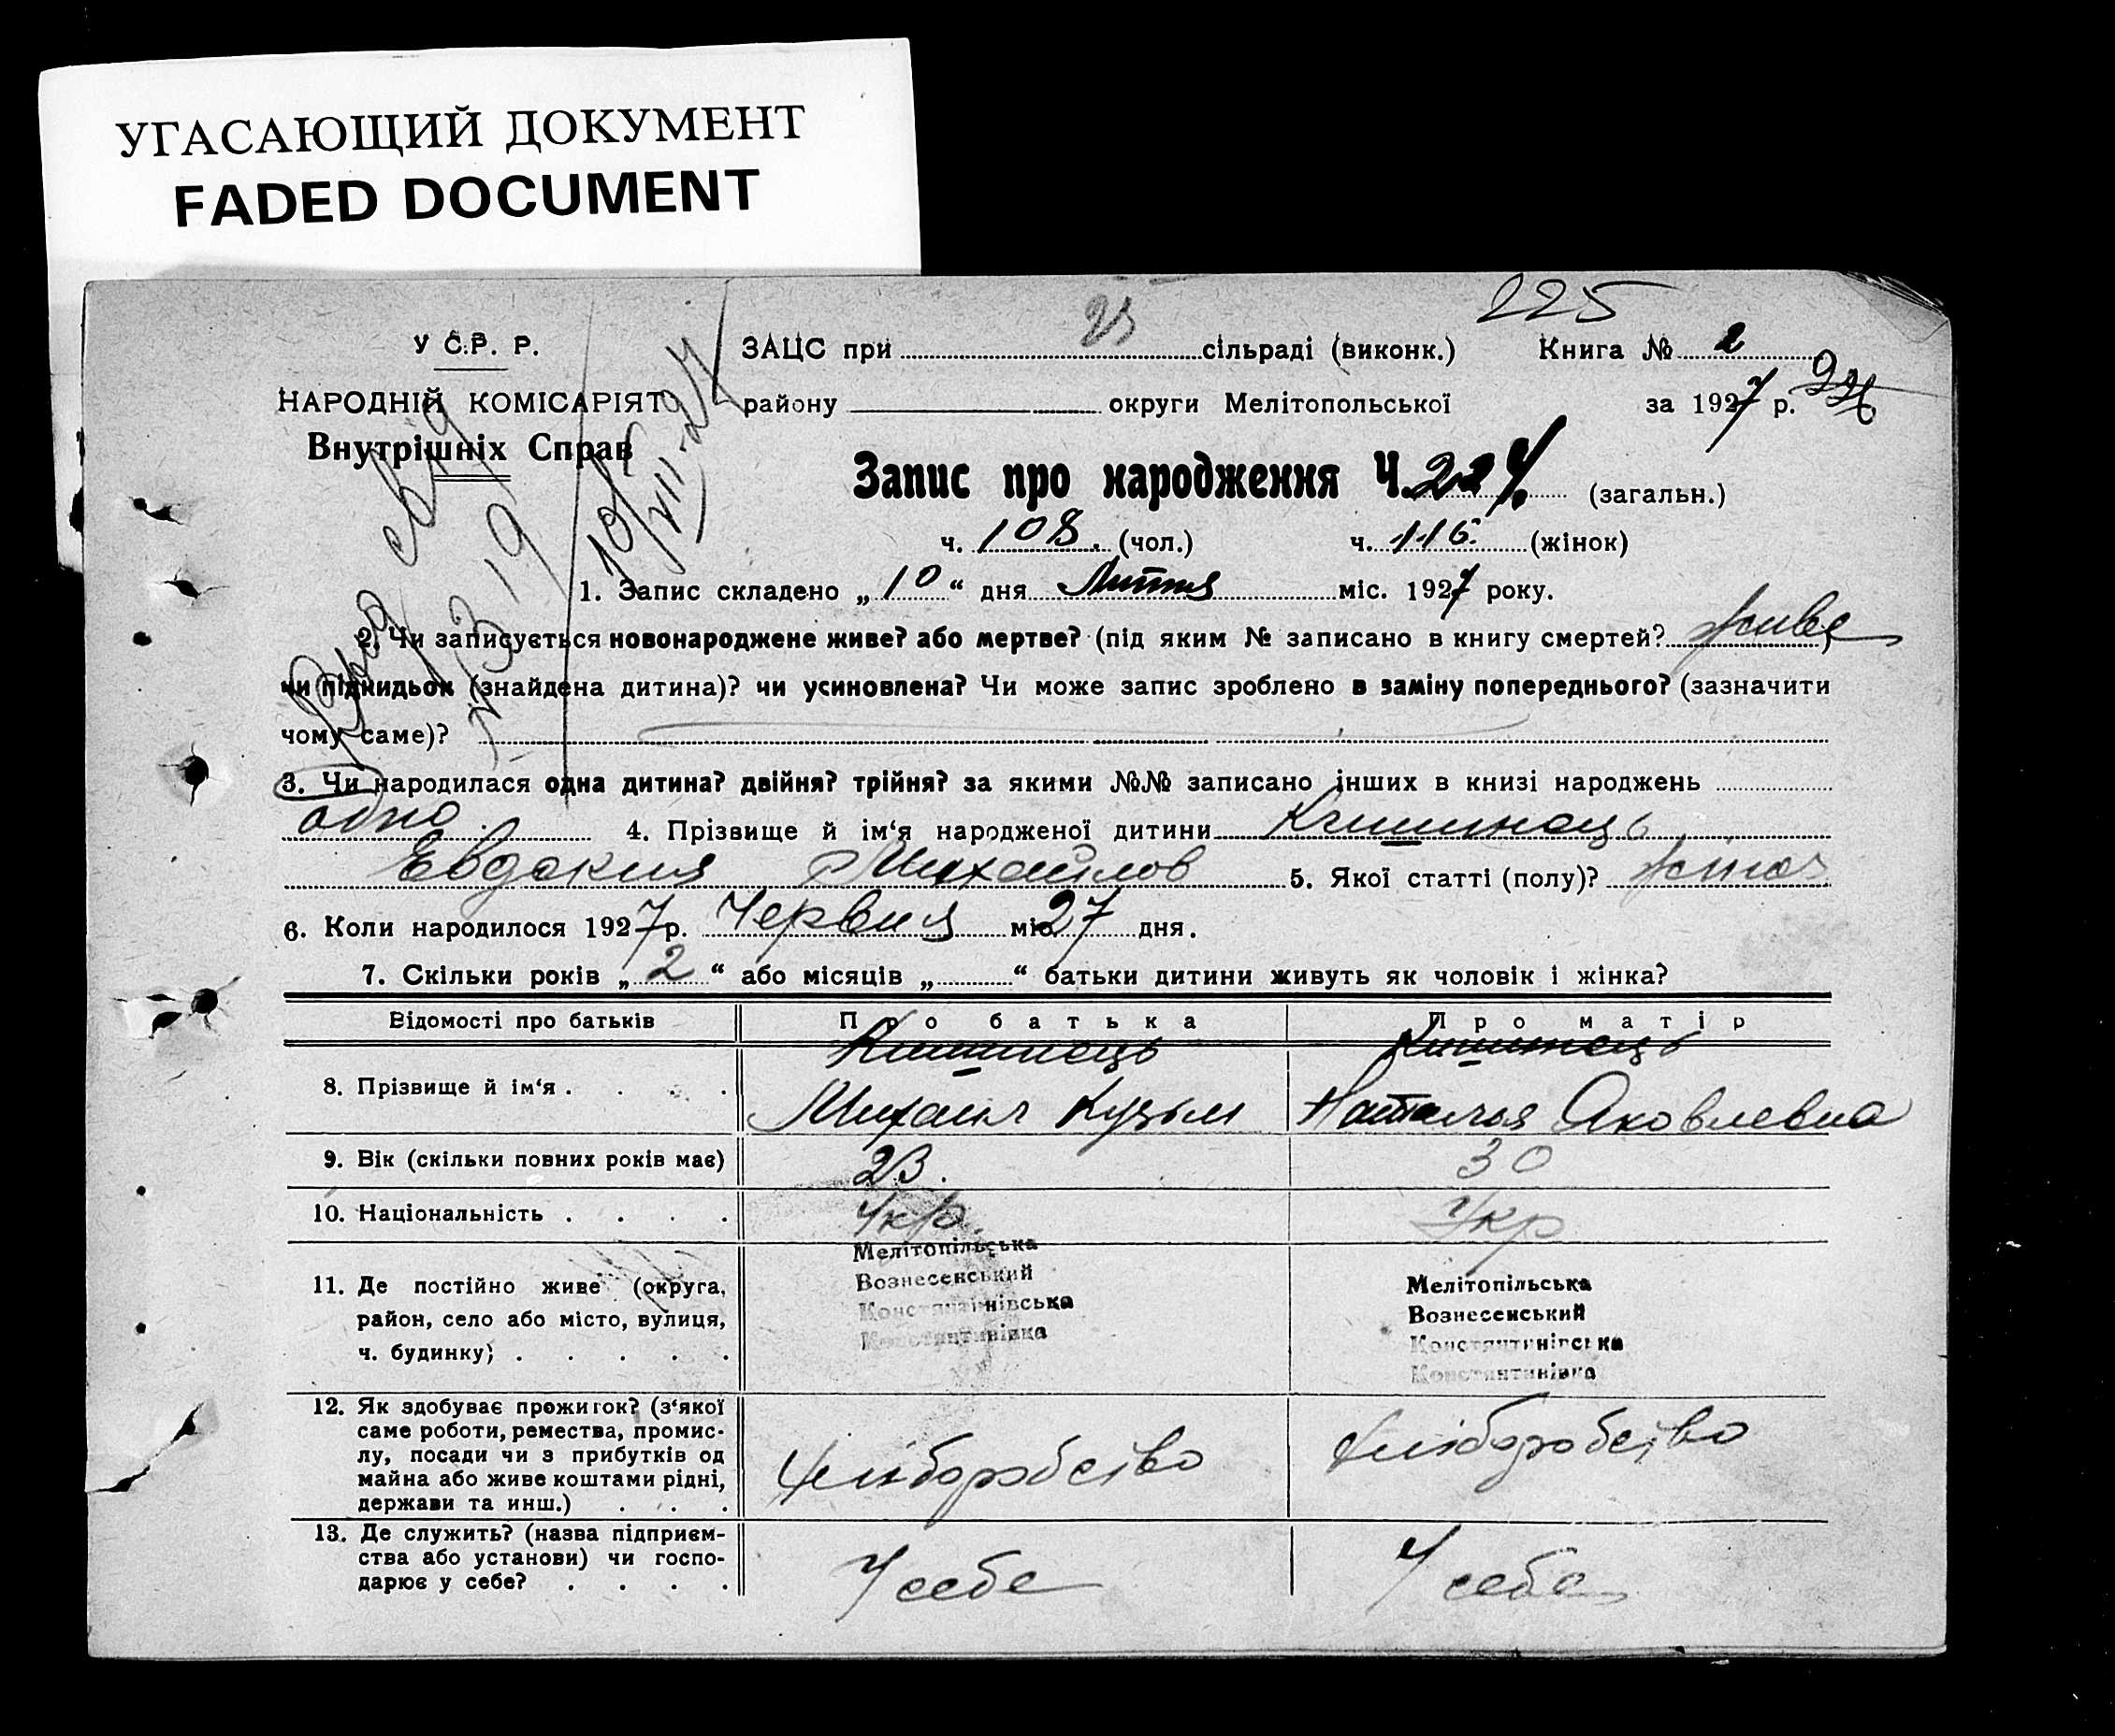 УГАСАЮЩИЙ ДОКУМЕНТ
FADED DOCUMENT
225
У С.Р. Р.
НАРОДНІЙ КОМІСАРІЯТ
Внутрішніх Справ
ЗАЦС при сільраді (виконк.) Книга № 2
району округи Мелітопольської за 1927 р.
Запис про народження Ч. 224. (загальн.)
ч. 108. (чол.) ч. 116. (жінок)
1. Запис складено „10“ дня Липня міс. 1927 року.
2. Чи записується новонароджене живе? або мертве? (під яким № записано в книгу смертей? живе)
чи підкидьок (знайдена дитина)? чи усиновлена? Чи може запис зроблено в заміну попереднього? (зазначити
чому саме)?
3. Чи народилася одна дитина? двійня? трійня? за якими №№ записано інших в книзі народжень
одно. 4. Прізвище й ім‘я народженої дитини Кишинець
Евдокия Михайлов 5. Якої статті (полу)? жіноч
6. Коли народилося 1927 р. Червня міс. 27 дня.
7. Скільки років „2“ або місяців „ “ батьки дитини живуть як чоловік і жінка?
Відомості про батьків Про батька Про матір
8. Прізвище й ім‘я . . . . Кишинець Кишинець
Михаил Кузьм Наталья Яковлевна
9. Вік (скільки повних років має) 23. 30
10. Національність . . . . Укр. Укр
11. Де постійно живе (округа,
район, село або місто, вулиця,
ч. будинку) . . . . .
Мелітопільська
Вознесенський
Константинівська
Константинівка
Мелітопільська
Вознесенський
Константинівська
Константинівка
12. Як здобуває прожиток? (з‘якої
саме роботи, ремества, промис-
лу, посади чи з прибутків од
майна або живе коштами рідні,
держави та инш.) . . .
Хліборобство Хліборобство
13. Де служить? (назва підприєм-
ства або установи) чи госпо-
дарює у себе? . . . .
У себе У себе